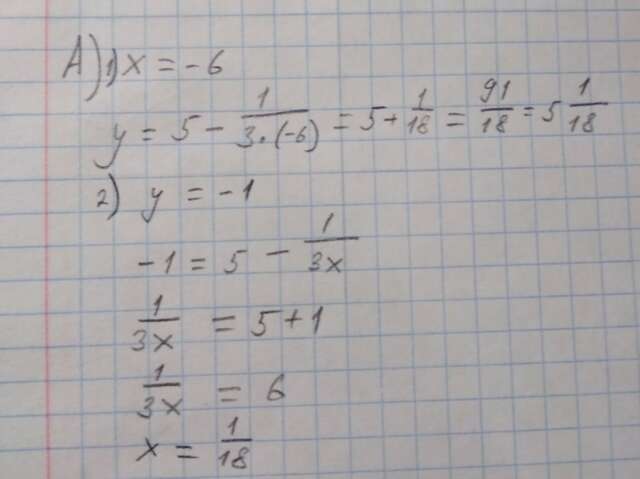 А) 1) x = -6
y = 5 - 1/(3·(-6)) = 5 + 1/18 = 91/18 = 5 1/18
2) y = -1
-1 = 5 - 1/(3x)
1/(3x) = 5 + 1
1/(3x) = 6
x = 1/18